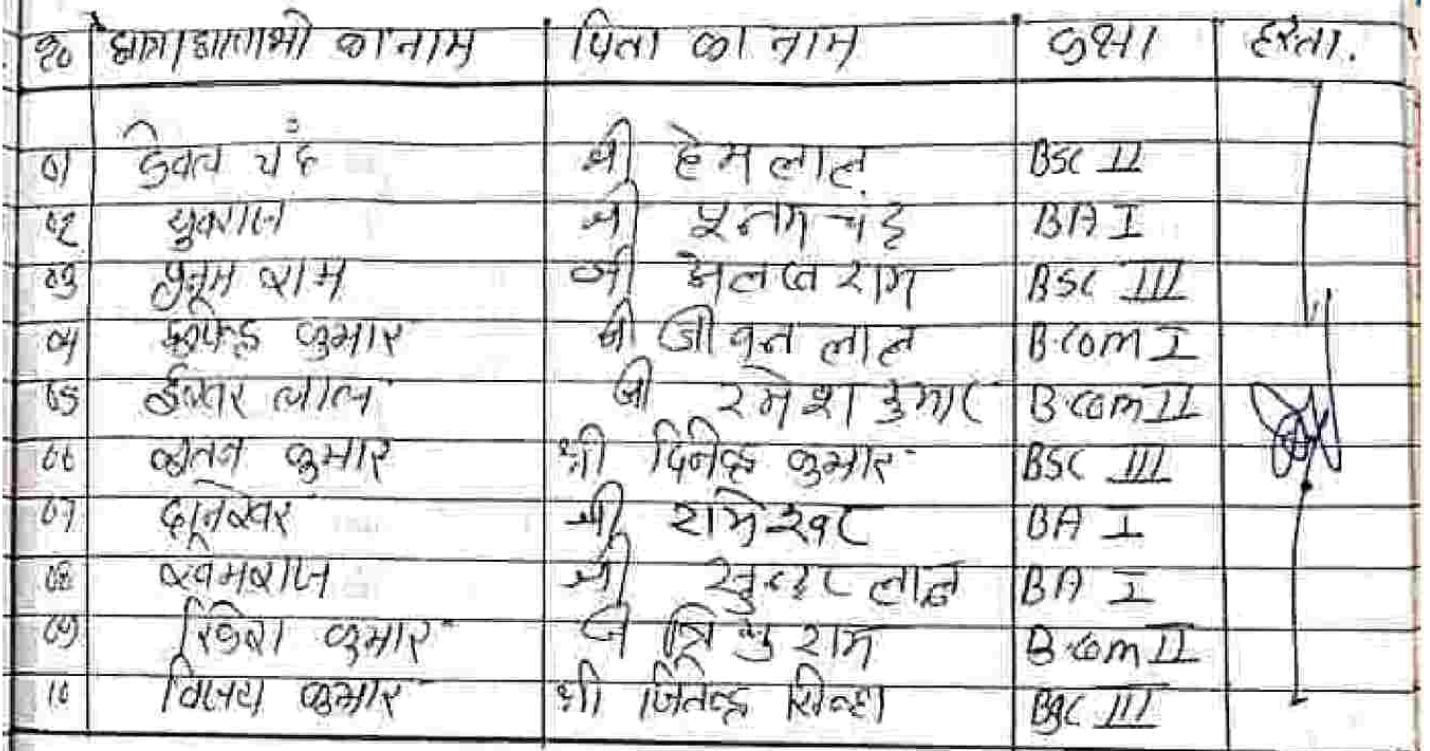 क्र० छात्र/छात्राओं का नाम पिता का नाम कक्षा हस्ता.
01 चंद श्री हेमलाल BSC II
02 युवराज श्री पूनम चंद BA I
03 पुनूम राम श्री राम BSC III
04 कुमार श्री जीवन लाल B.COM I
05 ईश्वर लाल श्री रमेश कुमार B.COM II
06 कुमार श्री दिनेन्द्र कुमार BSC III
07 दानेश्वर श्री रामेश्वर BA I
08 खेमराज श्री सुन्दर लाल BA I
09 कुमार श्री राम B.com II
10 विजय कुमार श्री जितेन्द्र सिन्हा BSC III